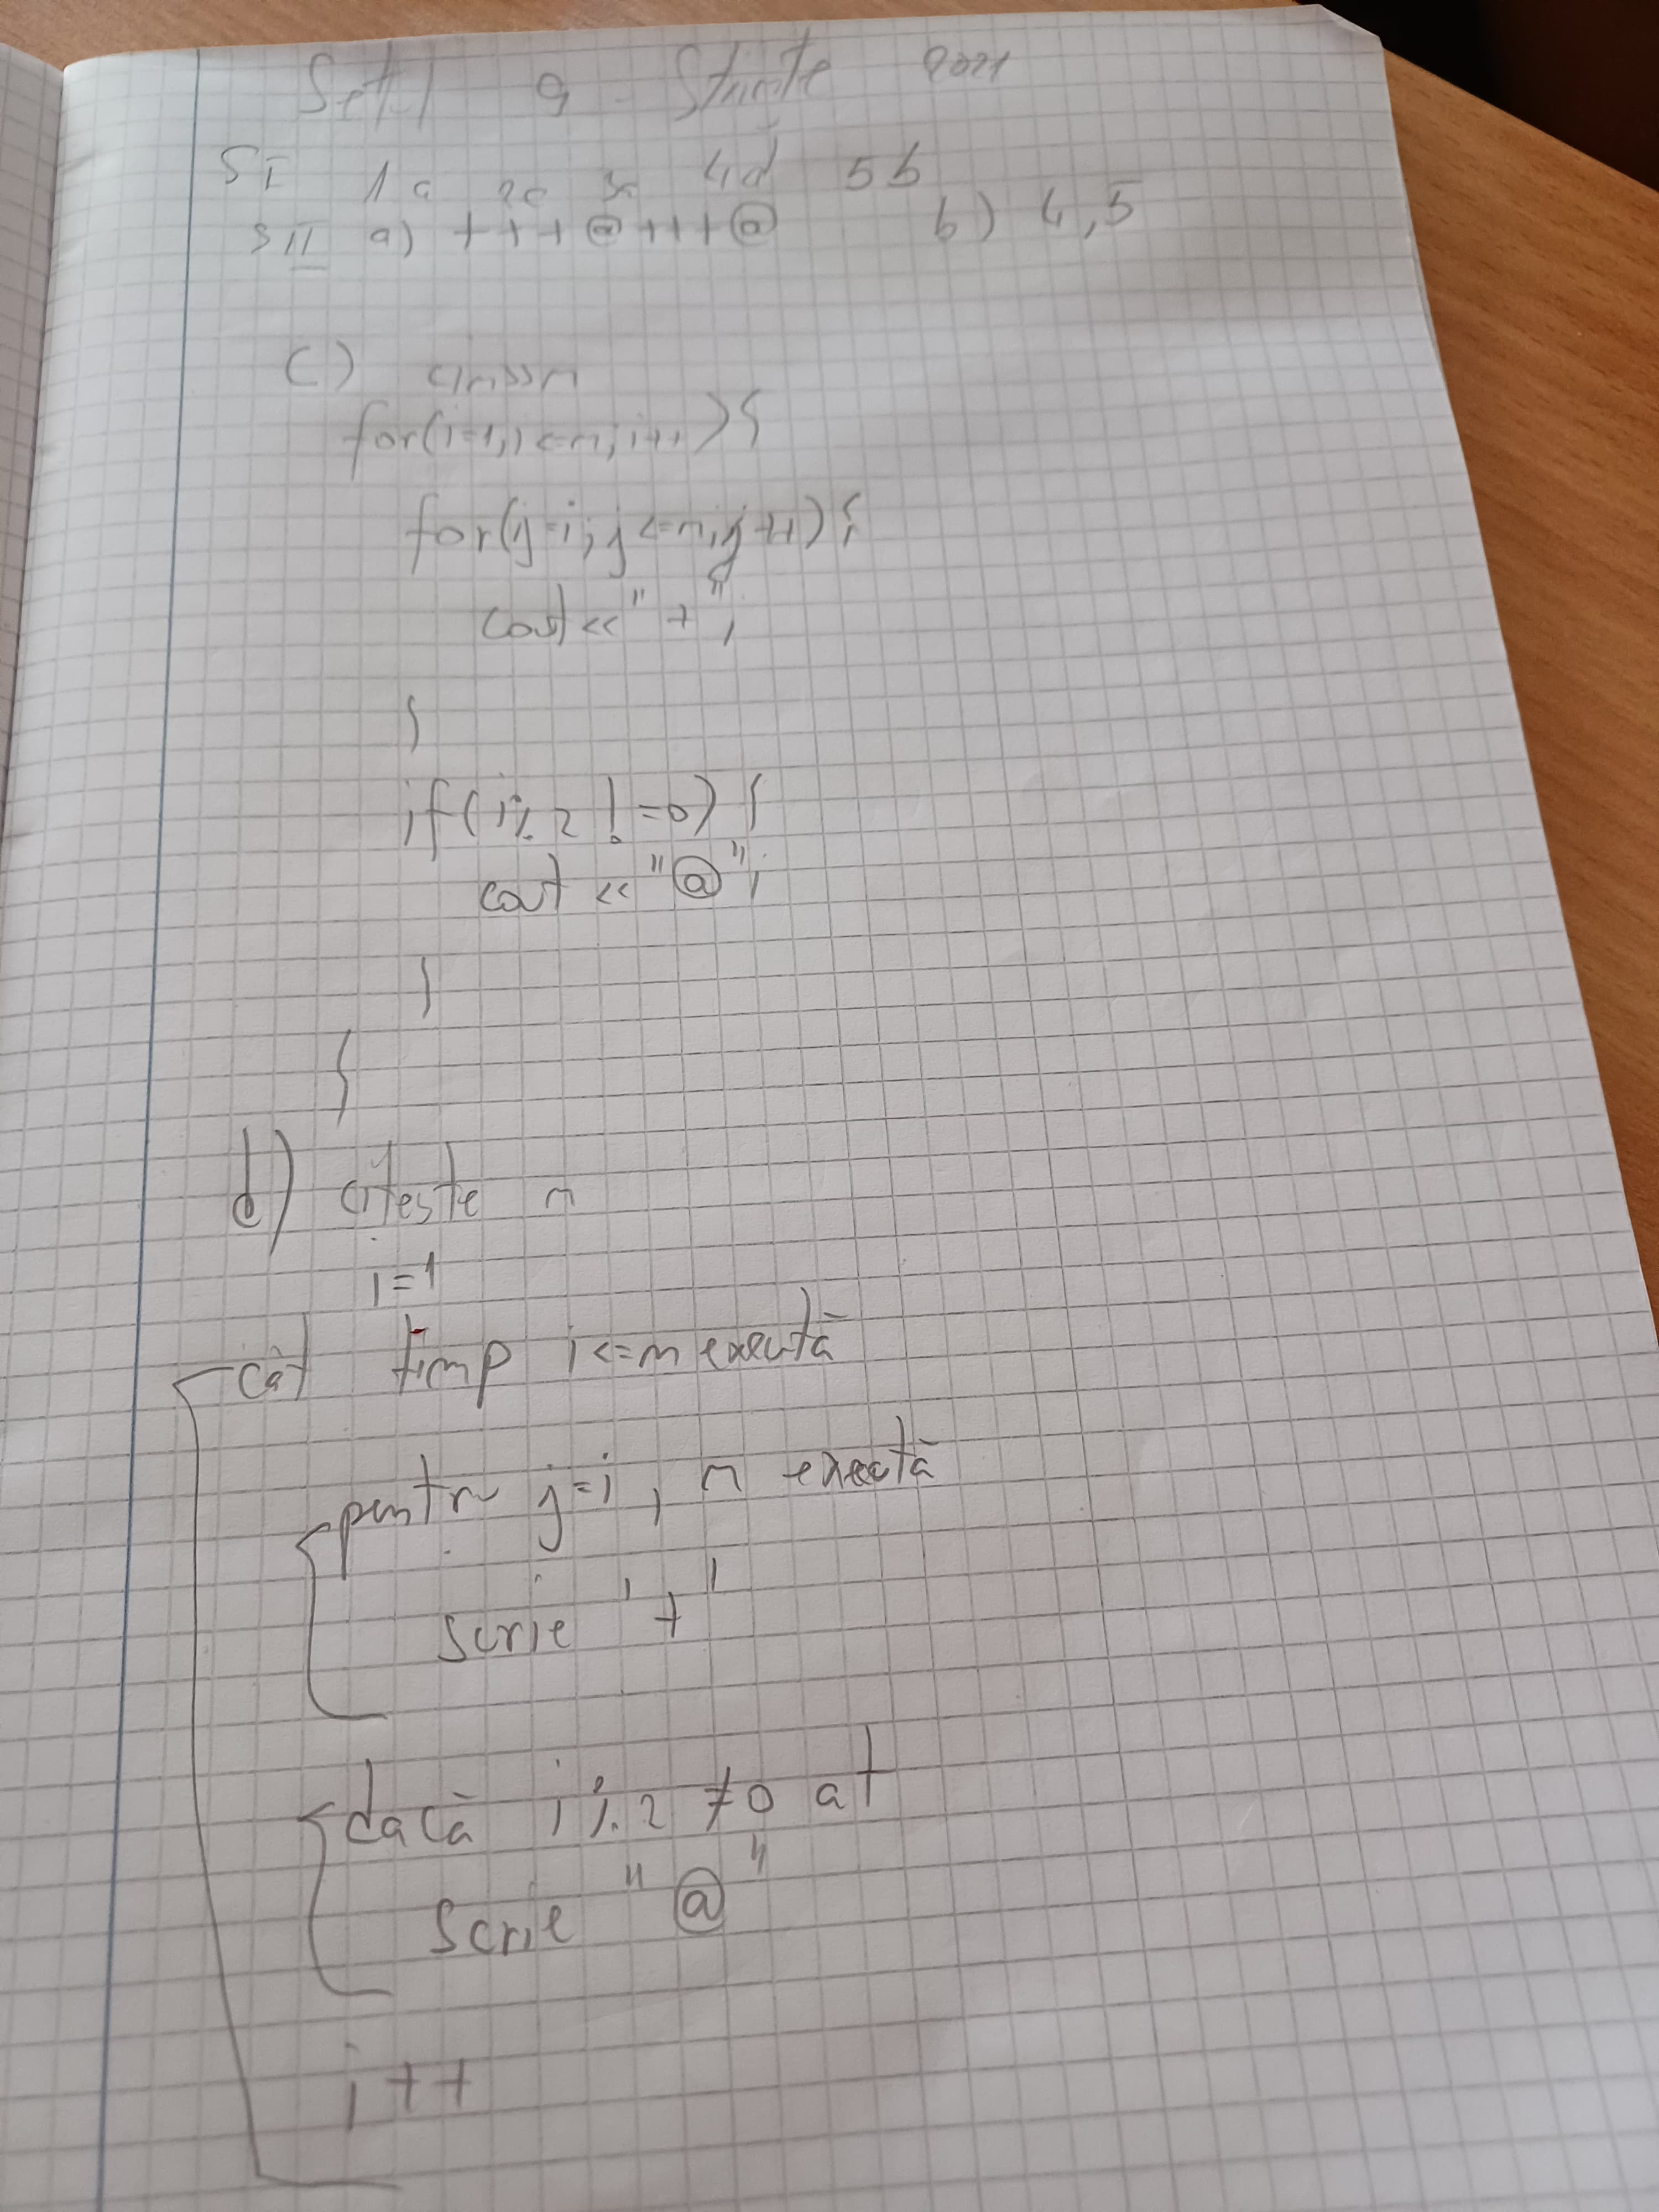 Setul 9 Stiinte 2021
SI 1a 2c 3c 4d 5b
SII a) +++@+++@ b) 4,5
c) cin>>n
for(i=1;i<=n;i++){
for(j=i;j<=n;j++){
cout<<"+";
}
if(i%2!=0){
cout<<"@";
}
}
d) citeste n
i=1
cât timp i<=n execută
pentru j=i, n execută
scrie '+'
dacă i%2≠0 at
scrie "@"
i++